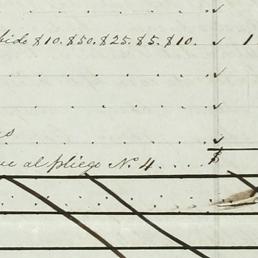 bido $10. $50. $25. $5. $10. ✓ 1
✓
✓
✓
✓
ue al pliego N. 4 . . . . $